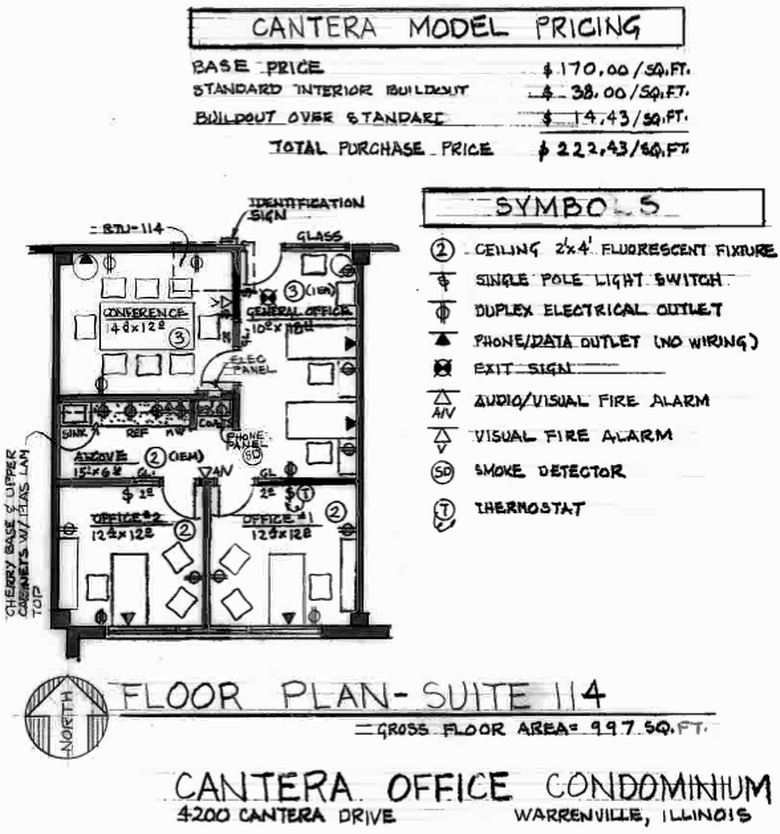 CANTERA MODEL PRICING
BASE PRICE $170.00/SQ.FT.
STANDARD INTERIOR BUILDOUT $ 38.00/SQ.FT.
BUILDOUT OVER STANDARD $ 14.43/SQ.FT.
TOTAL PURCHASE PRICE $222.43/SQ.FT.
SYMBOLS
2 CEILING 2'x4' FLUORESCENT FIXTURE
SINGLE POLE LIGHT SWITCH
DUPLEX ELECTRICAL OUTLET
PHONE/DATA OUTLET (NO WIRING)
EXIT SIGN
A/V AUDIO/VISUAL FIRE ALARM
V VISUAL FIRE ALARM
SD SMOKE DETECTOR
T THERMOSTAT
IDENTIFICATION
SIGN
RTU-114
GLASS
CONFERENCE
3
3 (1EM)
GENERAL OFFICE
ELEC
PANEL
SINK
REF
MW
COATS
PHONE
PANEL
SD
2 (1EM)
A/V
GL.
GL
T
OFFICE #2
2
OFFICE #1
2
CHERRY BASE & UPPER
CABINETS W/PLAS LAM
TOP
NORTH
FLOOR PLAN-SUITE 114
GROSS FLOOR AREA= 997 SQ.FT.
CANTERA OFFICE CONDOMINIUM
4200 CANTERA DRIVE WARRENVILLE, ILLINOIS